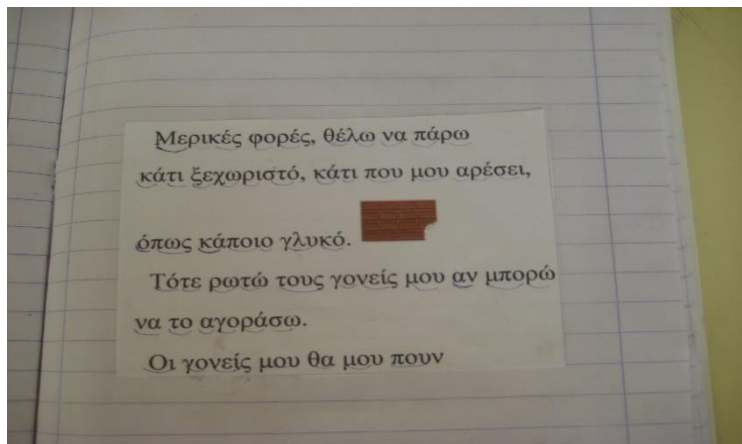 Μερικές φορές, θέλω να πάρω
κάτι ξεχωριστό, κάτι που μου αρέσει,
όπως κάποιο γλυκό.
Τότε ρωτώ τους γονείς μου αν μπορώ
να το αγοράσω.
Οι γονείς μου θα μου πουν